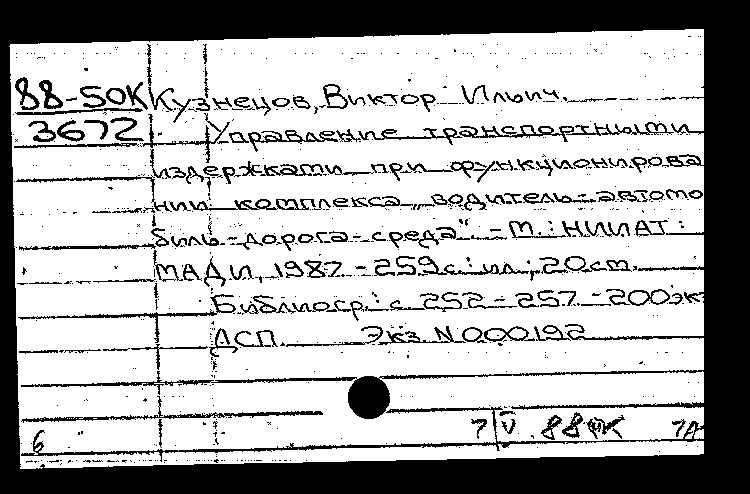 88-50К Кузнецов, Виктор Ильич.
3672 Управление транспортными
издержками при функционирова
нии комплекса „водитель-автомо
биль-дорога-среда". - М.: НИИАТ:
МАДИ, 1987. - 259 с.: ил.; 20 cm.
Библиогр.: с. 252-257. - 200 экз
ДСП. Экз. N 000192
6 7 V 88 7А